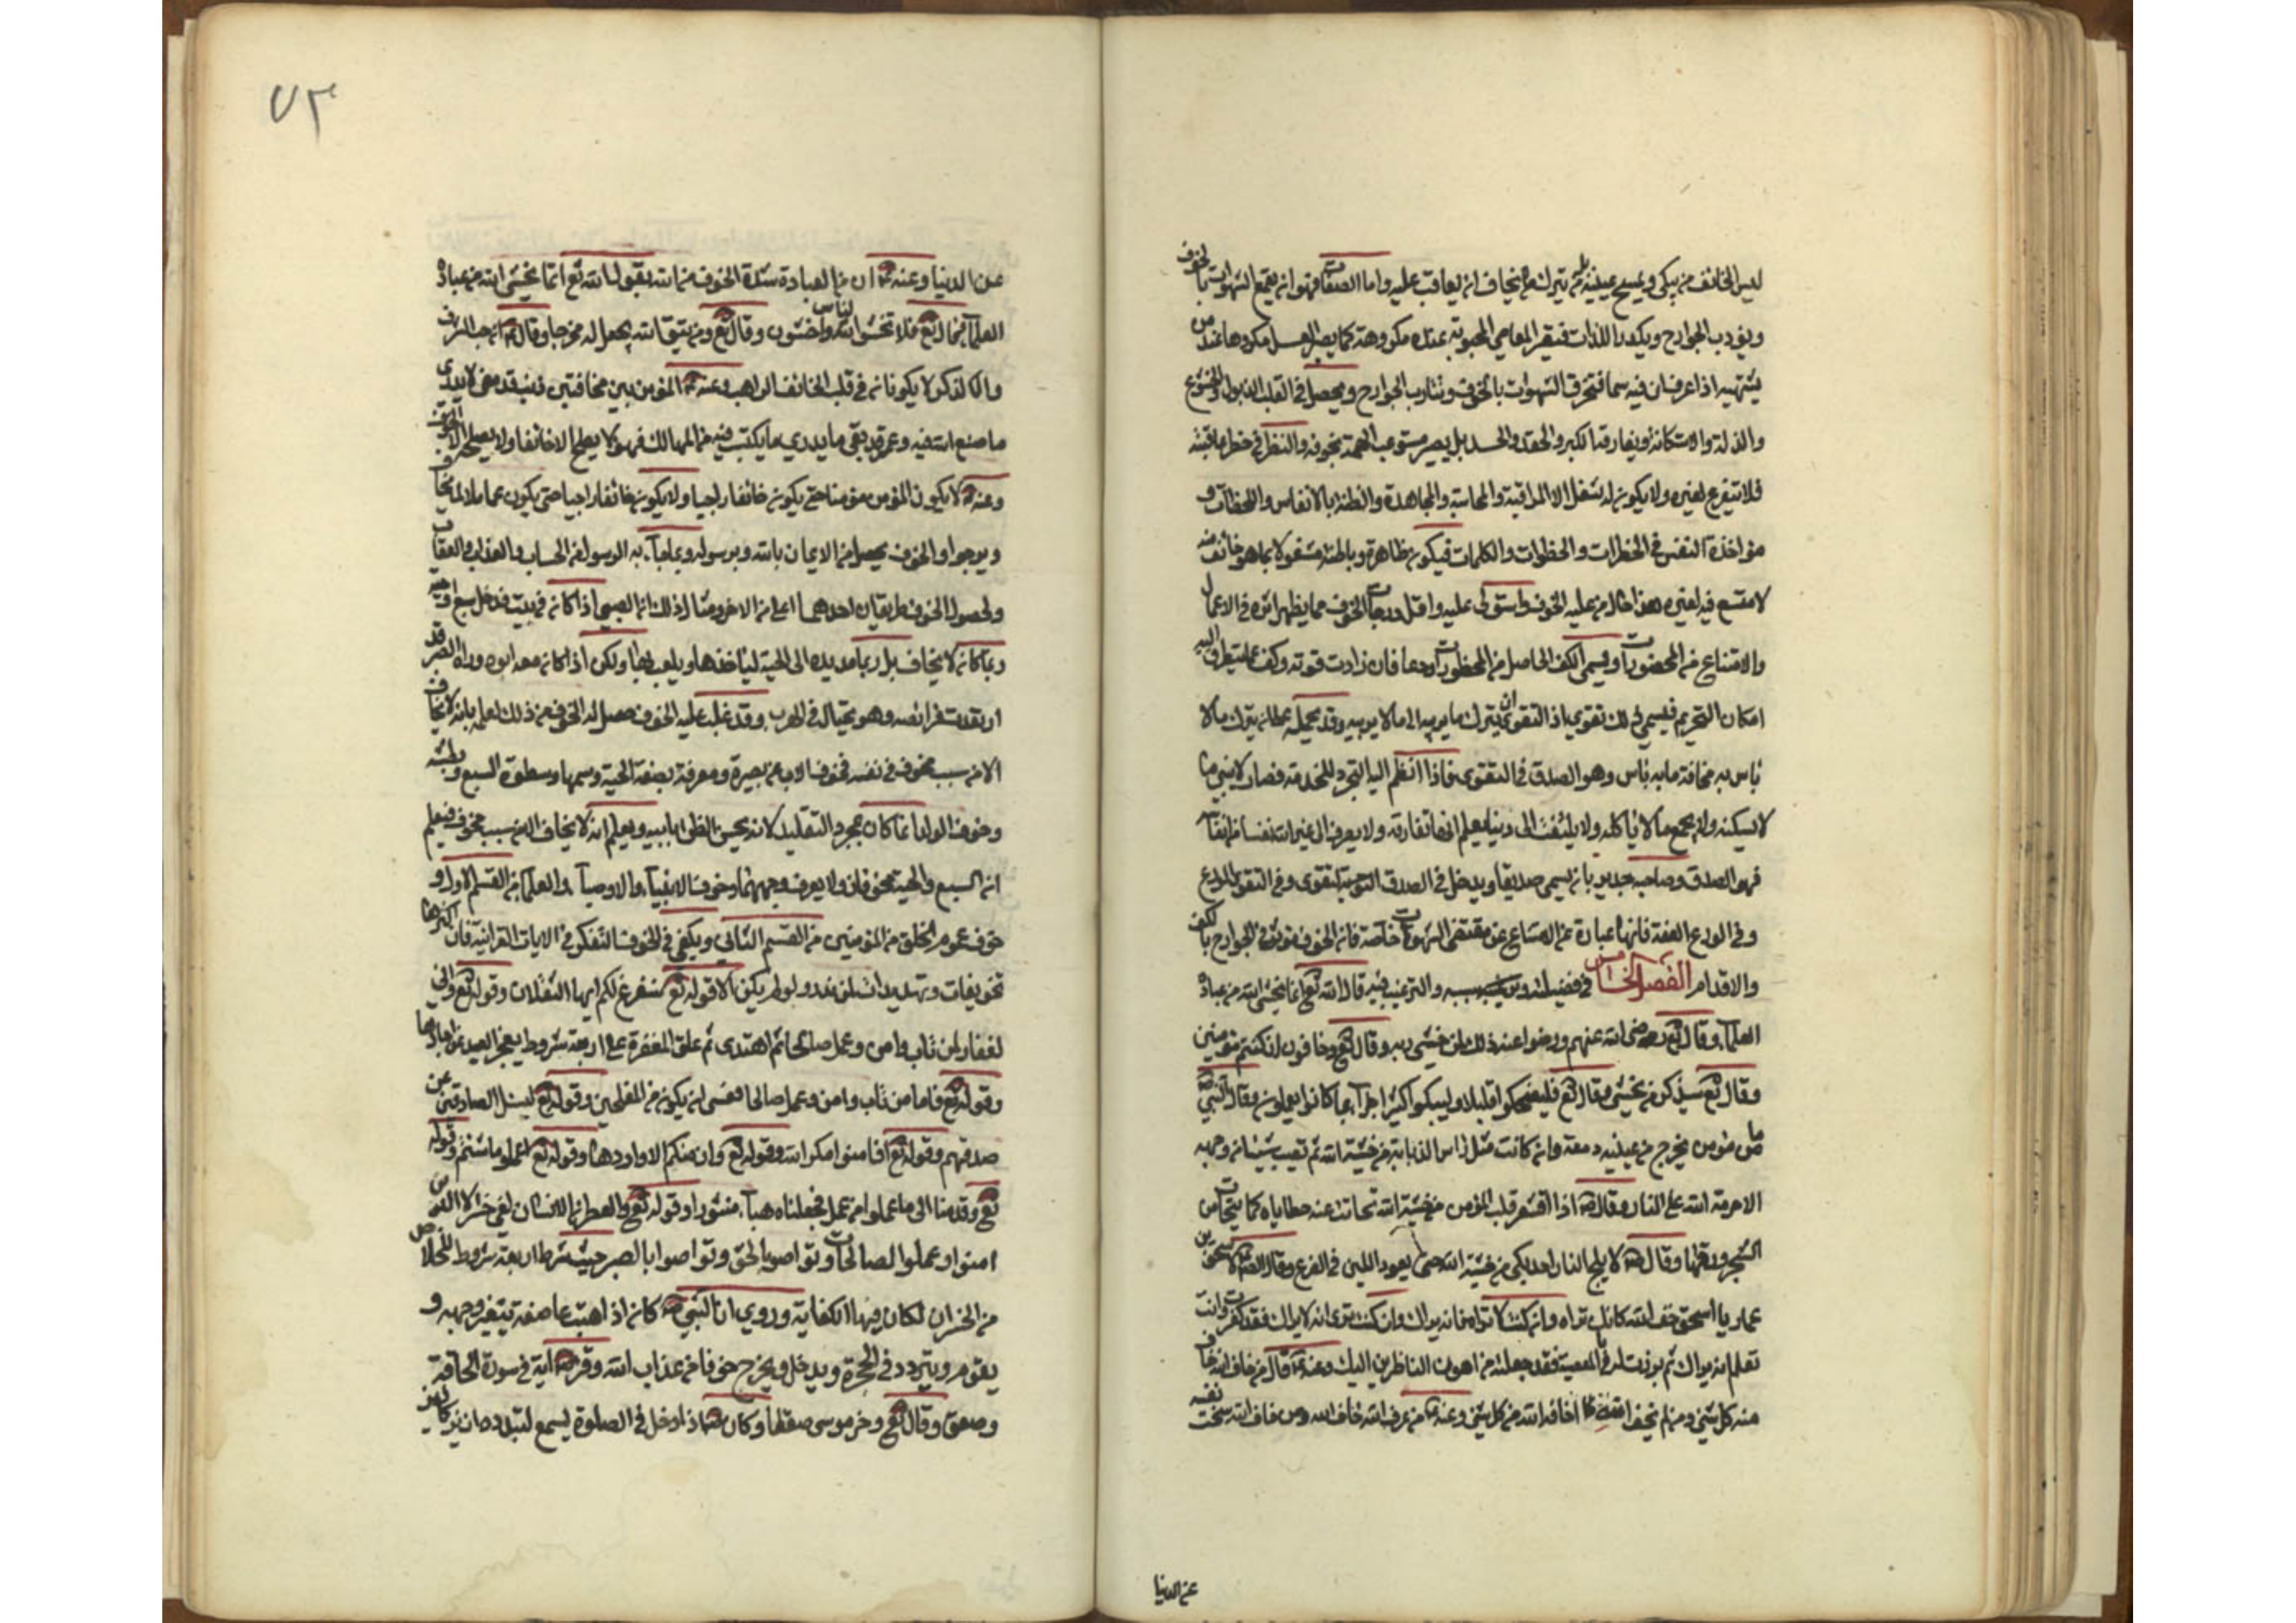 ليس الخائف من يبكي ويمسح عينيه بل من يترك ما يخاف ان يعاقب عليه واما الصفات فهو انه يقمع الشهوات بالخوف
ويؤدب الجوارح ويكدر اللذات فيصير المعاصي المحبوبة عنده مكروهة كما يصير العسل مكروها عند من
يشتهيه اذا عرف ان فيه سما فتحترق الشهوات بالخوف وتتأدب الجوارح ويحصل في القلب الذبول والخشوع
والذلة والاستكانة ويفارقه الكبر والحقد والحسد بل يصير مستوعب الهم بخوفه والنظر في خطر عاقبته
فلا يتفرغ لغيره ولا يكون له شغل الا المراقبة والمحاسبة والمجاهدة والظنة بالانفاس واللحظات و
مؤاخذة النفس في الخطرات والخطوات والكلمات فيكون ظاهره وباطنه مشغولا بما هو خائف منه
لا متسع فيه لغيره هذا حال من عليه الخوف واستولى عليه واقل درجات الخوف مما يظهر اثره في الاعمال
والامتناع من المحضورات ويسمى الكف الحاصل من المحظورات ورعا فان زادت قوته وكف عما يتطرق اليه
امكان التحريم فيسمى ذلك تقوى اذ التقوى ان يترك ما يريبه الى ما لا يريبه وقد يحمله على ان يترك ما لا
باس به مخافة ما به باس وهو الصدق في التقوى فاذا انظم اليه التجرد للخدمة فصار لا يبني ما
لا يسكنه ولا يجمع ما لا ياكله ولا يلتفت الى دنيا يعلم انها تفارقه ولا يصرف الى غير الله نفسا من انفاسه
فهو الصدق وصاحبه جدير بان يسمى صديقا ويدخل في الصدق التقوى وفي التقوى الورع
وفي الورع العفة فانها عبارة عن الامتناع عن مقتضى الشهوات خاصة فاذا الخوف مؤثر في الجوارح بالكف
والاقدام الفصل الخامس في فضيلته والترغيب فيه قال الله تع انما يخشى الله من عباده
العلماء وقال تع رضي الله عنهم ورضوا عنه ذلك لمن خشي ربه وقال تع وخافون ان كنتم مؤمنين
وقال تع سيذكر من يخشى وقال تع فليضحكوا قليلا وليبكوا كثيرا جزاء بما كانوا يعملون وقال النبي ص
ما من مؤمن يخرج من عينيه دمعة وان كانت مثل راس الذبابة من خشية الله ثم تصيب شيئا من وجهه
الا حرمه الله على النار وقال ص اذا اقشعر قلب المؤمن من خشية الله تحاتت عنه خطاياه كما يتحات من
الشجر ورقها وقال ص لا يلج النار احد بكى من خشية الله حتى يعود اللبن في الضرع وقال الص ع لاسحق بن
عمار يا اسحق خف الله كانك تراه وان كنت لا تراه فانه يراك وان كنت ترى انه لا يراك فقد كفرت وان كنت
تعلم انه يراك ثم برزت له في المعصية فقد جعلته من اهون الناظرين اليك وعنه ع قال من خاف الله اخاف
منه كل شئ ومن لم يخف الله اخافه الله من كل شئ وعنه ع من عرف الله خاف الله ومن خاف الله سخت نفسه
عن الدنيا
٧٣
عن الدنيا وعنه ع ان من العبادة شدة الخوف من الله يقول الله تع انما يخشى الله من عباده
العلماء فقال تع فلا تخشوا الناس واخشون وقال تع ومن يتق الله يجعل له مخرجا وقال ع ان حب الشرف
والذكر لا يكونان في قلب الخائف الراهب وعنه ع المؤمن بين مخافتين ذنب قد مضى لا يدري
ما صنع الله فيه وعمر قد بقي ما يدري ما يكتسب فيه من المهالك فهو لا يصبح الا خائفا ولا يصلحه الا الخوف
وعنه ع لا يكون المؤمن مؤمنا حتى يكون خائفا راجيا ولا يكون خائفا راجيا حتى يكون عاملا لما يخاف
ويرجو والخوف يحصل من الايمان بالله وبرسوله وبما جاء به الرسول من الحساب والعذاب والعقاب
ولحصول الخوف طريقان احدهما اعلى من الاخر ومثال ذلك ان الصبي اذا كان في بيت فدخل سبع او حية
ربما كان لا يخاف بل ربما مد يده الى الحية لياخذها ويلعب بها ولكن اذا كان معه ابوه وراه الصبي وقد
ارتعدت فرائصه وهو يحتال في الهرب وقد غلب عليه الخوف حصل له الخوف من ذلك لعلمه بانه لا يخاف
الا من سبب مخوف في نفسه فخوف الاب عن بصيرة ومعرفة بصفة الحية وسمها وسطوة السبع وبطشه
وخوف الولد انما كان بمجرد التقليد لانه يحسن الظن بابيه ويعلم انه لا يخاف الا من سبب مخوف فيعلم
ان السبع والحية مخوفان ولا يعرف وجههما وخوف الانبياء والاوصياء والعلماء من القسم الاول و
خوف عموم الخلق من المؤمنين من القسم الثاني ويكفي في الخوف التفكر في الايات القرانية فان اكثرها
تخويفات وتهديدات لمن تدبر ولو لم يكن الا قوله تع سنفرغ لكم ايها الثقلان وقوله تع واني
لغفار لمن تاب وامن وعمل صالحا ثم اهتدى ثم علق المغفرة على اربعة شروط يعجز العبد عن احادها
وقوله تع فاما من تاب وامن وعمل صالحا فعسى ان يكون من المفلحين وقوله تع ليسئل الصادقين عن
صدقهم وقوله تع افامنوا مكر الله وقوله تع وان منكم الا واردها وقوله تع اعملوا ما شئتم وقوله
تع وقدمنا الى ما عملوا من عمل فجعلناه هباء منثورا وقوله تع والعصر ان الانسان لفي خسر الا الذين
امنوا وعملوا الصالحات وتواصوا بالحق وتواصوا بالصبر حيث شرط اربعة شروط للخلاص
من الخسران لكان فيها الكفاية وروي ان النبي ص كان اذا هبت عاصفة يتغير وجهه و
يقوم ويتردد في الحجرة ويدخل ويخرج خوفا من عذاب الله وقرء ص اية في سورة الحاقة
وصعق وقال تع وخر موسى صعقا وكان ص اذا دخل في الصلوة يسمع لصدره ازيز كازيز